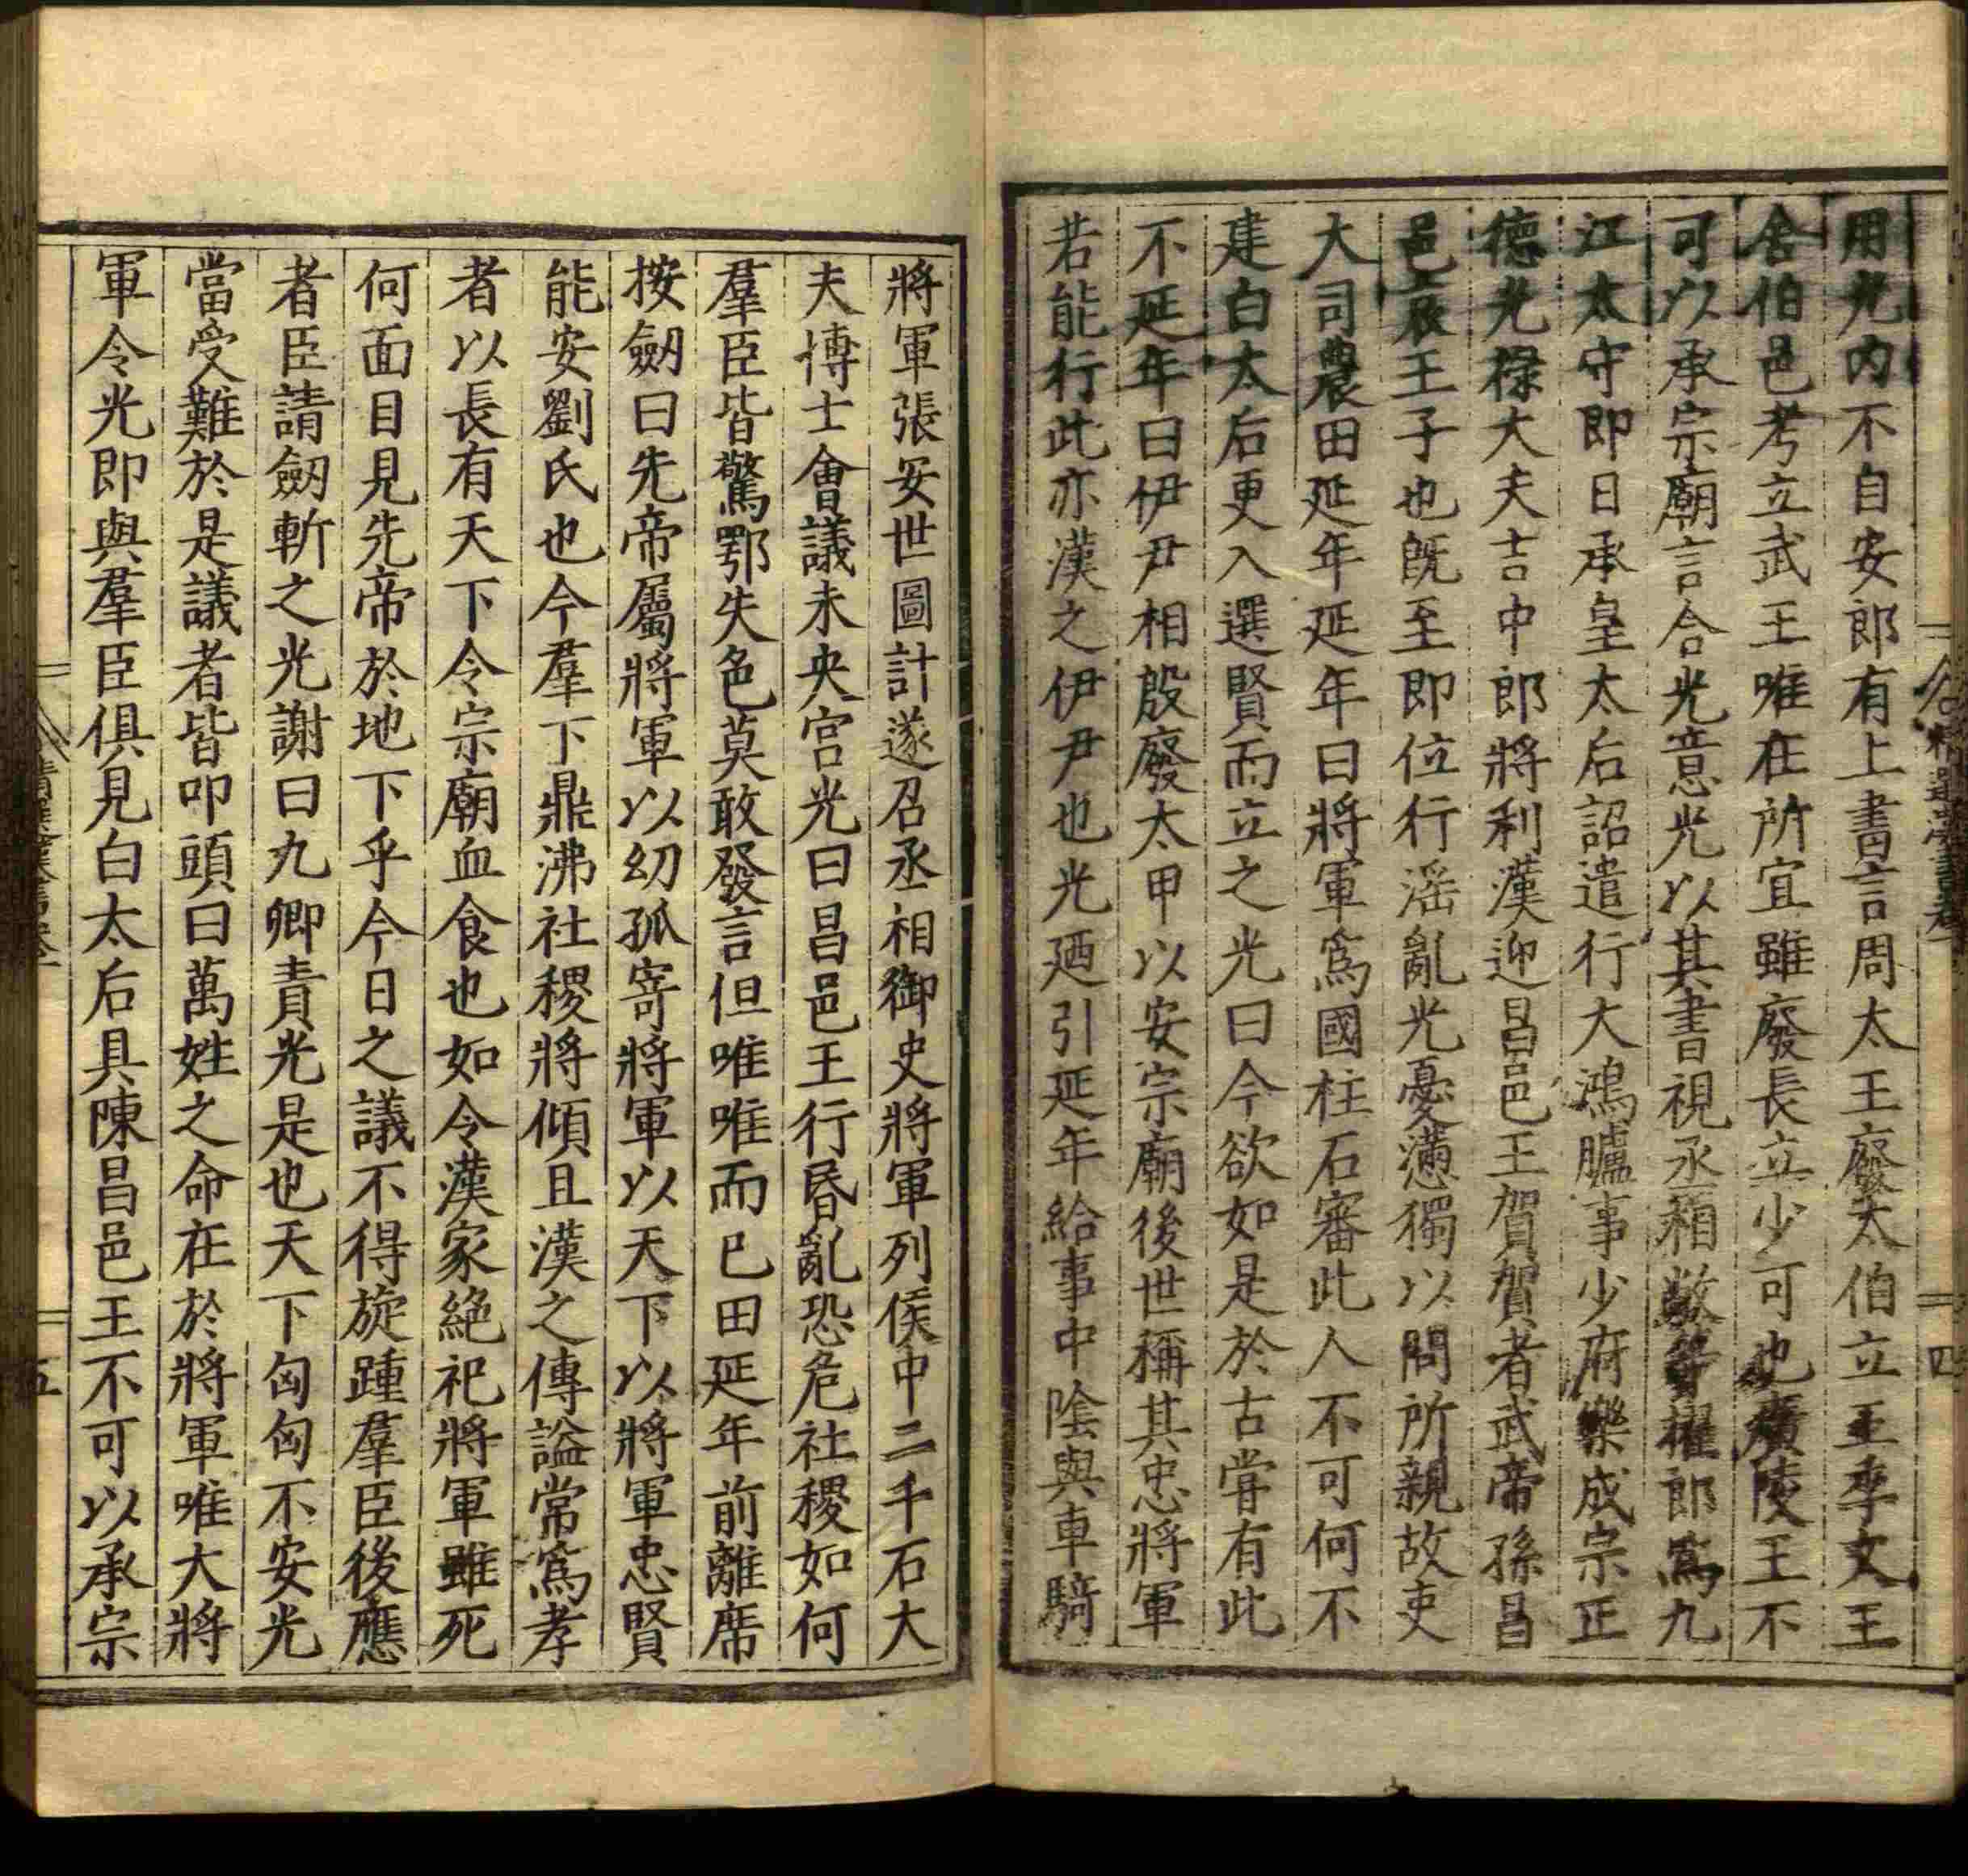 用光內不自安郎有上書言周太王廢太伯立王季文王
舍伯邑考立武王唯在所宜雖廢長立少可也廣陵王不
可以承宗廟言合光意光以其書視丞相敞等擢郎爲九
江太守即日承皇太后詔遣行大鴻臚事少府樂成宗正
德光祿大夫吉中郎將利漢迎昌邑王賀賀者武帝孫昌
邑哀王子也旣至即位行滛亂光憂懣獨以問所親故吏
大司農田延年延年曰將軍爲國柱石審此人不可何不
建白太后更入選賢而立之光曰今欲如是於古嘗有此
不延年曰伊尹相殷廢太甲以安宗廟後世稱其忠將軍
若能行此亦漢之伊尹也光廼引延年給事中隂與車騎
四
將軍張安世圖計遂召丞相御史將軍列侯中二千石大
夫博士會議未央宮光曰昌邑王行昏亂恐危社稷如何
羣臣皆驚鄂失色莫敢發言但唯唯而已田延年前離席
按劒曰先帝屬將軍以幼孤寄將軍以天下以將軍忠賢
能安劉氏也今羣下鼎沸社稷將傾且漢之傳謚常爲孝
者以長有天下令宗廟血食也如令漢家絕祀將軍雖死
何面目見先帝於地下乎今日之議不得旋踵羣臣後應
者臣請劒斬之光謝曰九卿責光是也天下匈匈不安光
當受難於是議者皆叩頭曰萬姓之命在於將軍唯大將
軍令光即與羣臣俱見白太后具陳昌邑王不可以承宗
五